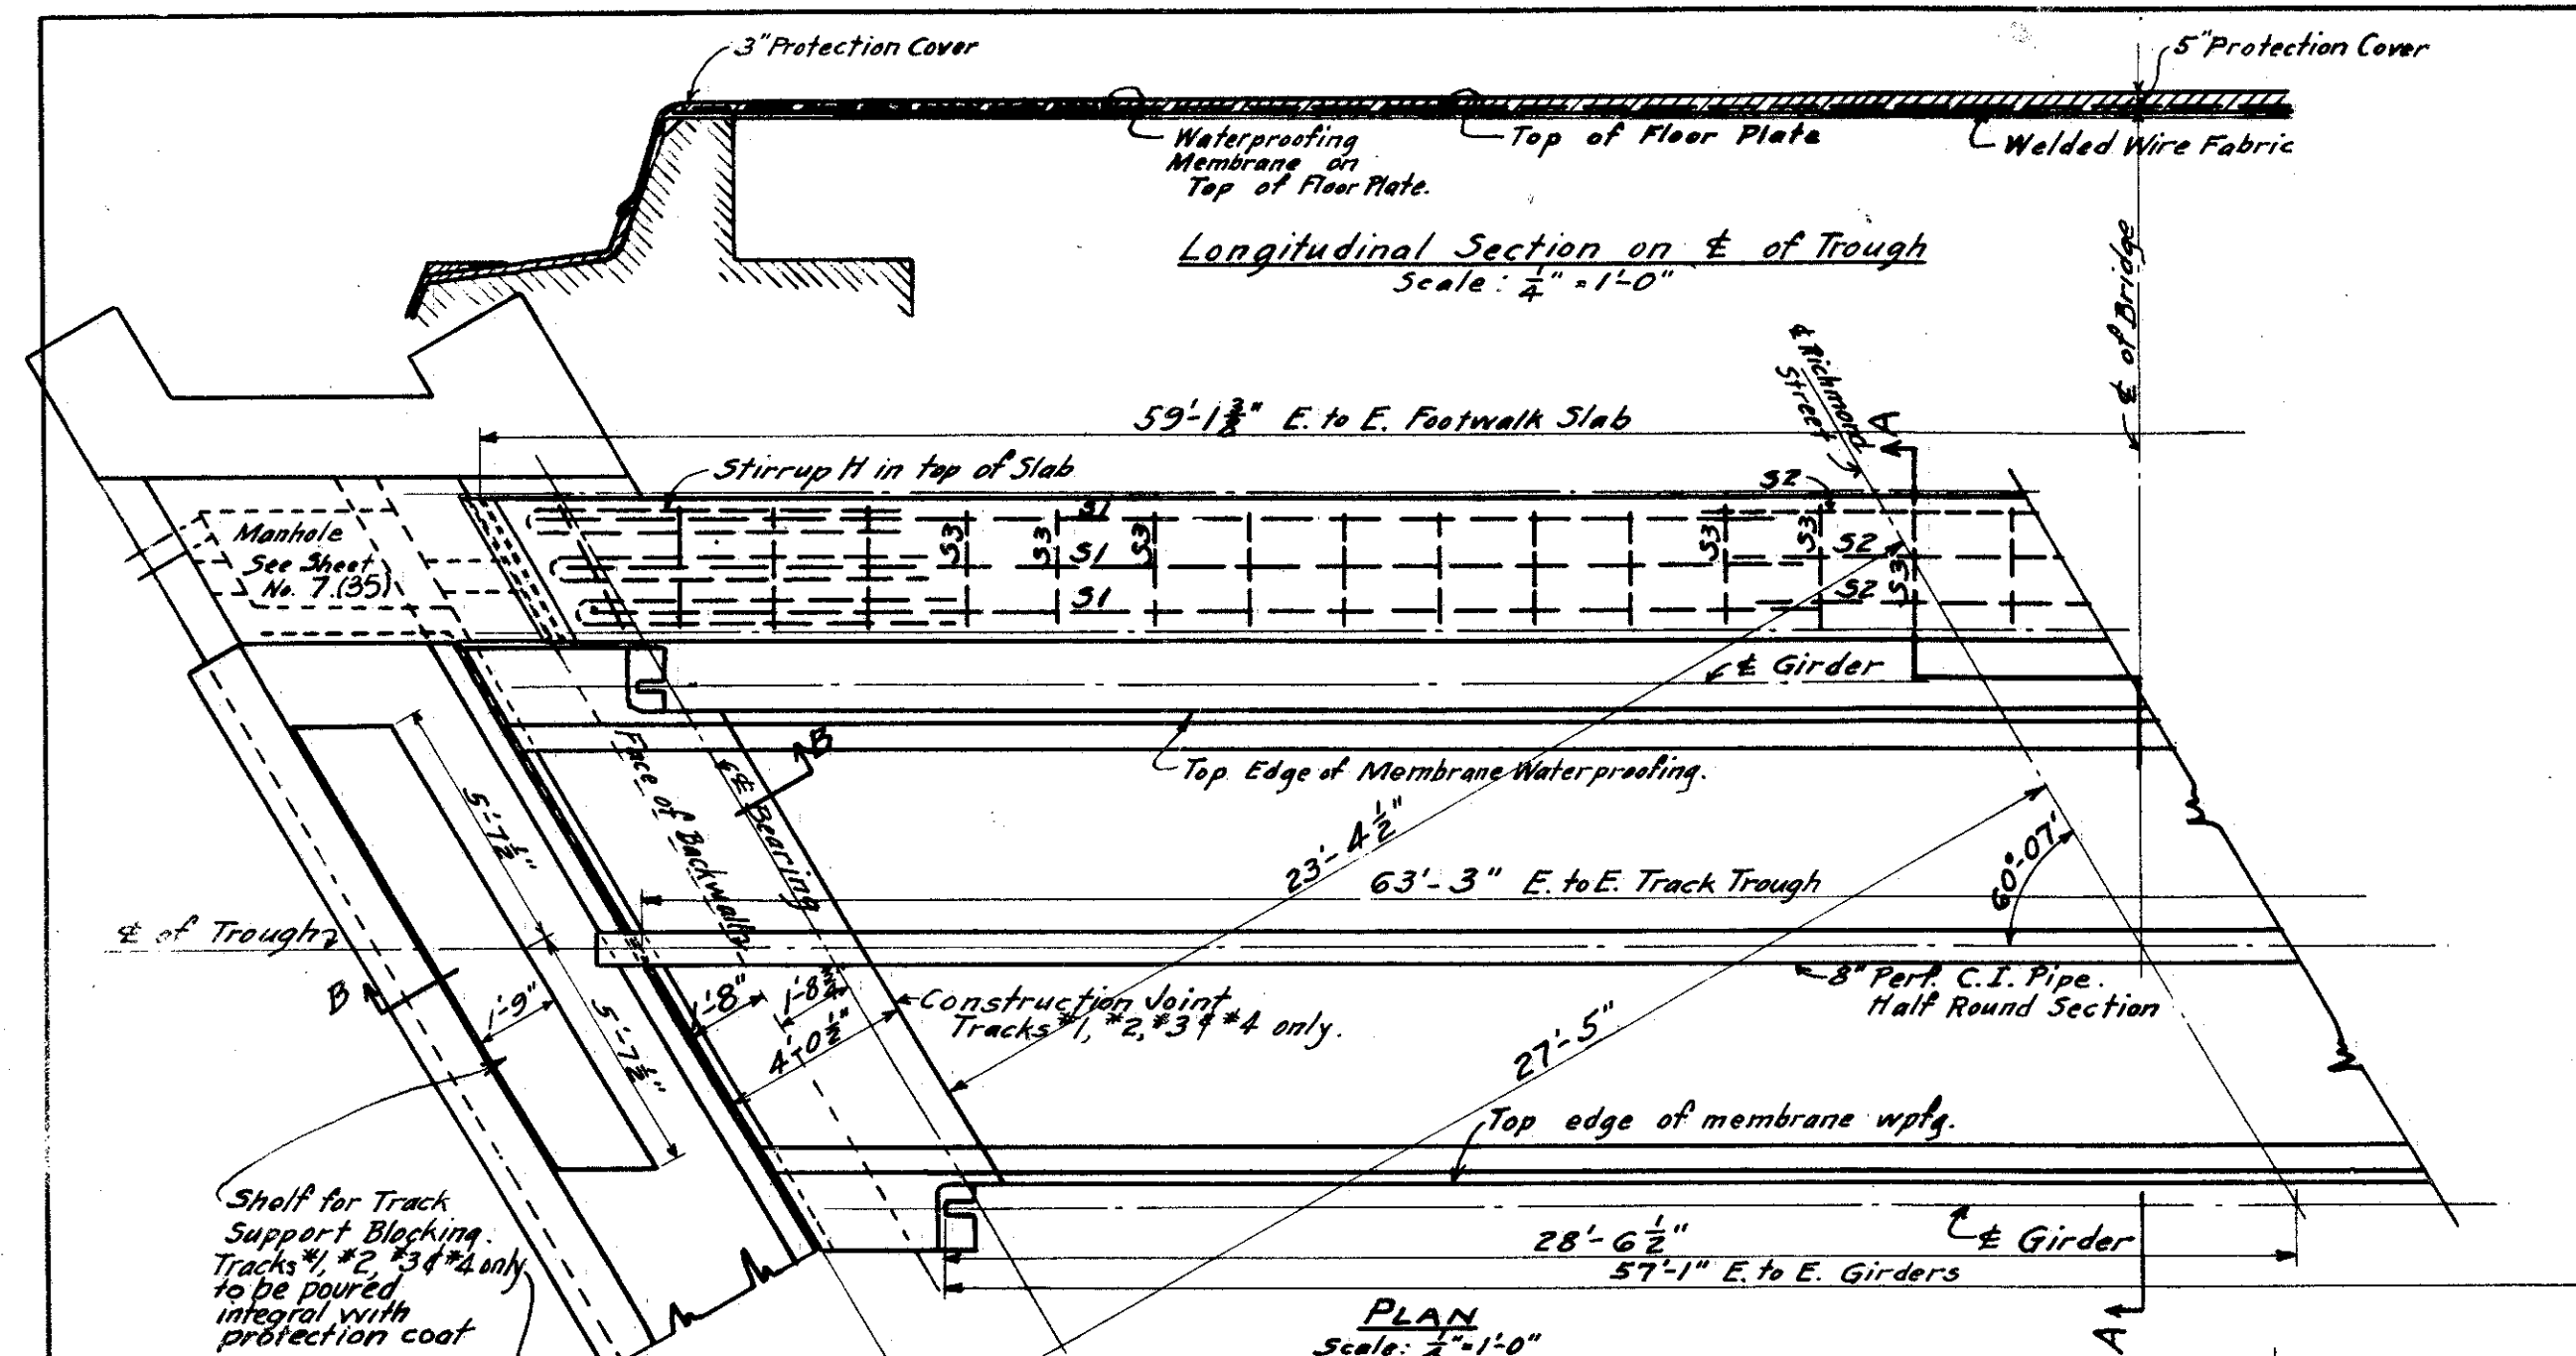 3" Protection Cover
5" Protection Cover
Waterproofing
Membrane on
Top of Floor Plate.
Top of Floor Plate
Welded Wire Fabric
Longitudinal Section on ℄ of Trough
Scale: 1/4" = 1'-0"
℄ of Bridge
℄ Richmond
Street
59'-1 3/8" E. to E. Footwalk Slab
A
Stirrup H in top of Slab
S2
S1
Manhole
See Sheet
No. 7.(35)
S3
S3
S3
S1
S3
S3
S2
S3
S1
S2
℄ Girder
B
Top Edge of Membrane Waterproofing.
Face of Backwall
℄ Bearing
5'-7 1/2"
23'-4 1/2"
63'-3" E. to E. Track Trough
60°-07'
℄ of Trough
8" Perf. C.I. Pipe.
Half Round Section
B
1'-9"
1'-8"
1'-8 3/4"
4'-0 1/2"
Construction Joint
Tracks #1, #2, #3 & #4 only.
5'-7 1/2"
27'-5"
Top edge of membrane wpfg.
Shelf for Track
Support Blocking.
Tracks #1, #2, #3 & #4 only
to be poured
integral with
protection coat
28'-6 1/2"
℄ Girder
57'-1" E. to E. Girders
PLAN
Scale: 1/4" = 1'-0"
A